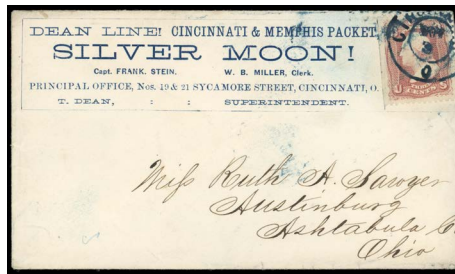 DEAN LINE! CINCINNATI & MEMPHIS PACKET,
SILVER MOON!
Capt. FRANK. STEIN. W. B. MILLER, Clerk.
PRINCIPAL OFFICE, Nos. 19 & 21 SYCAMORE STREET, CINCINNATI, O.
T. DEAN, : : SUPERINTENDENT.
Miss Ruth A. Sawyer
Austinburg
Ashtabula C.
Ohio